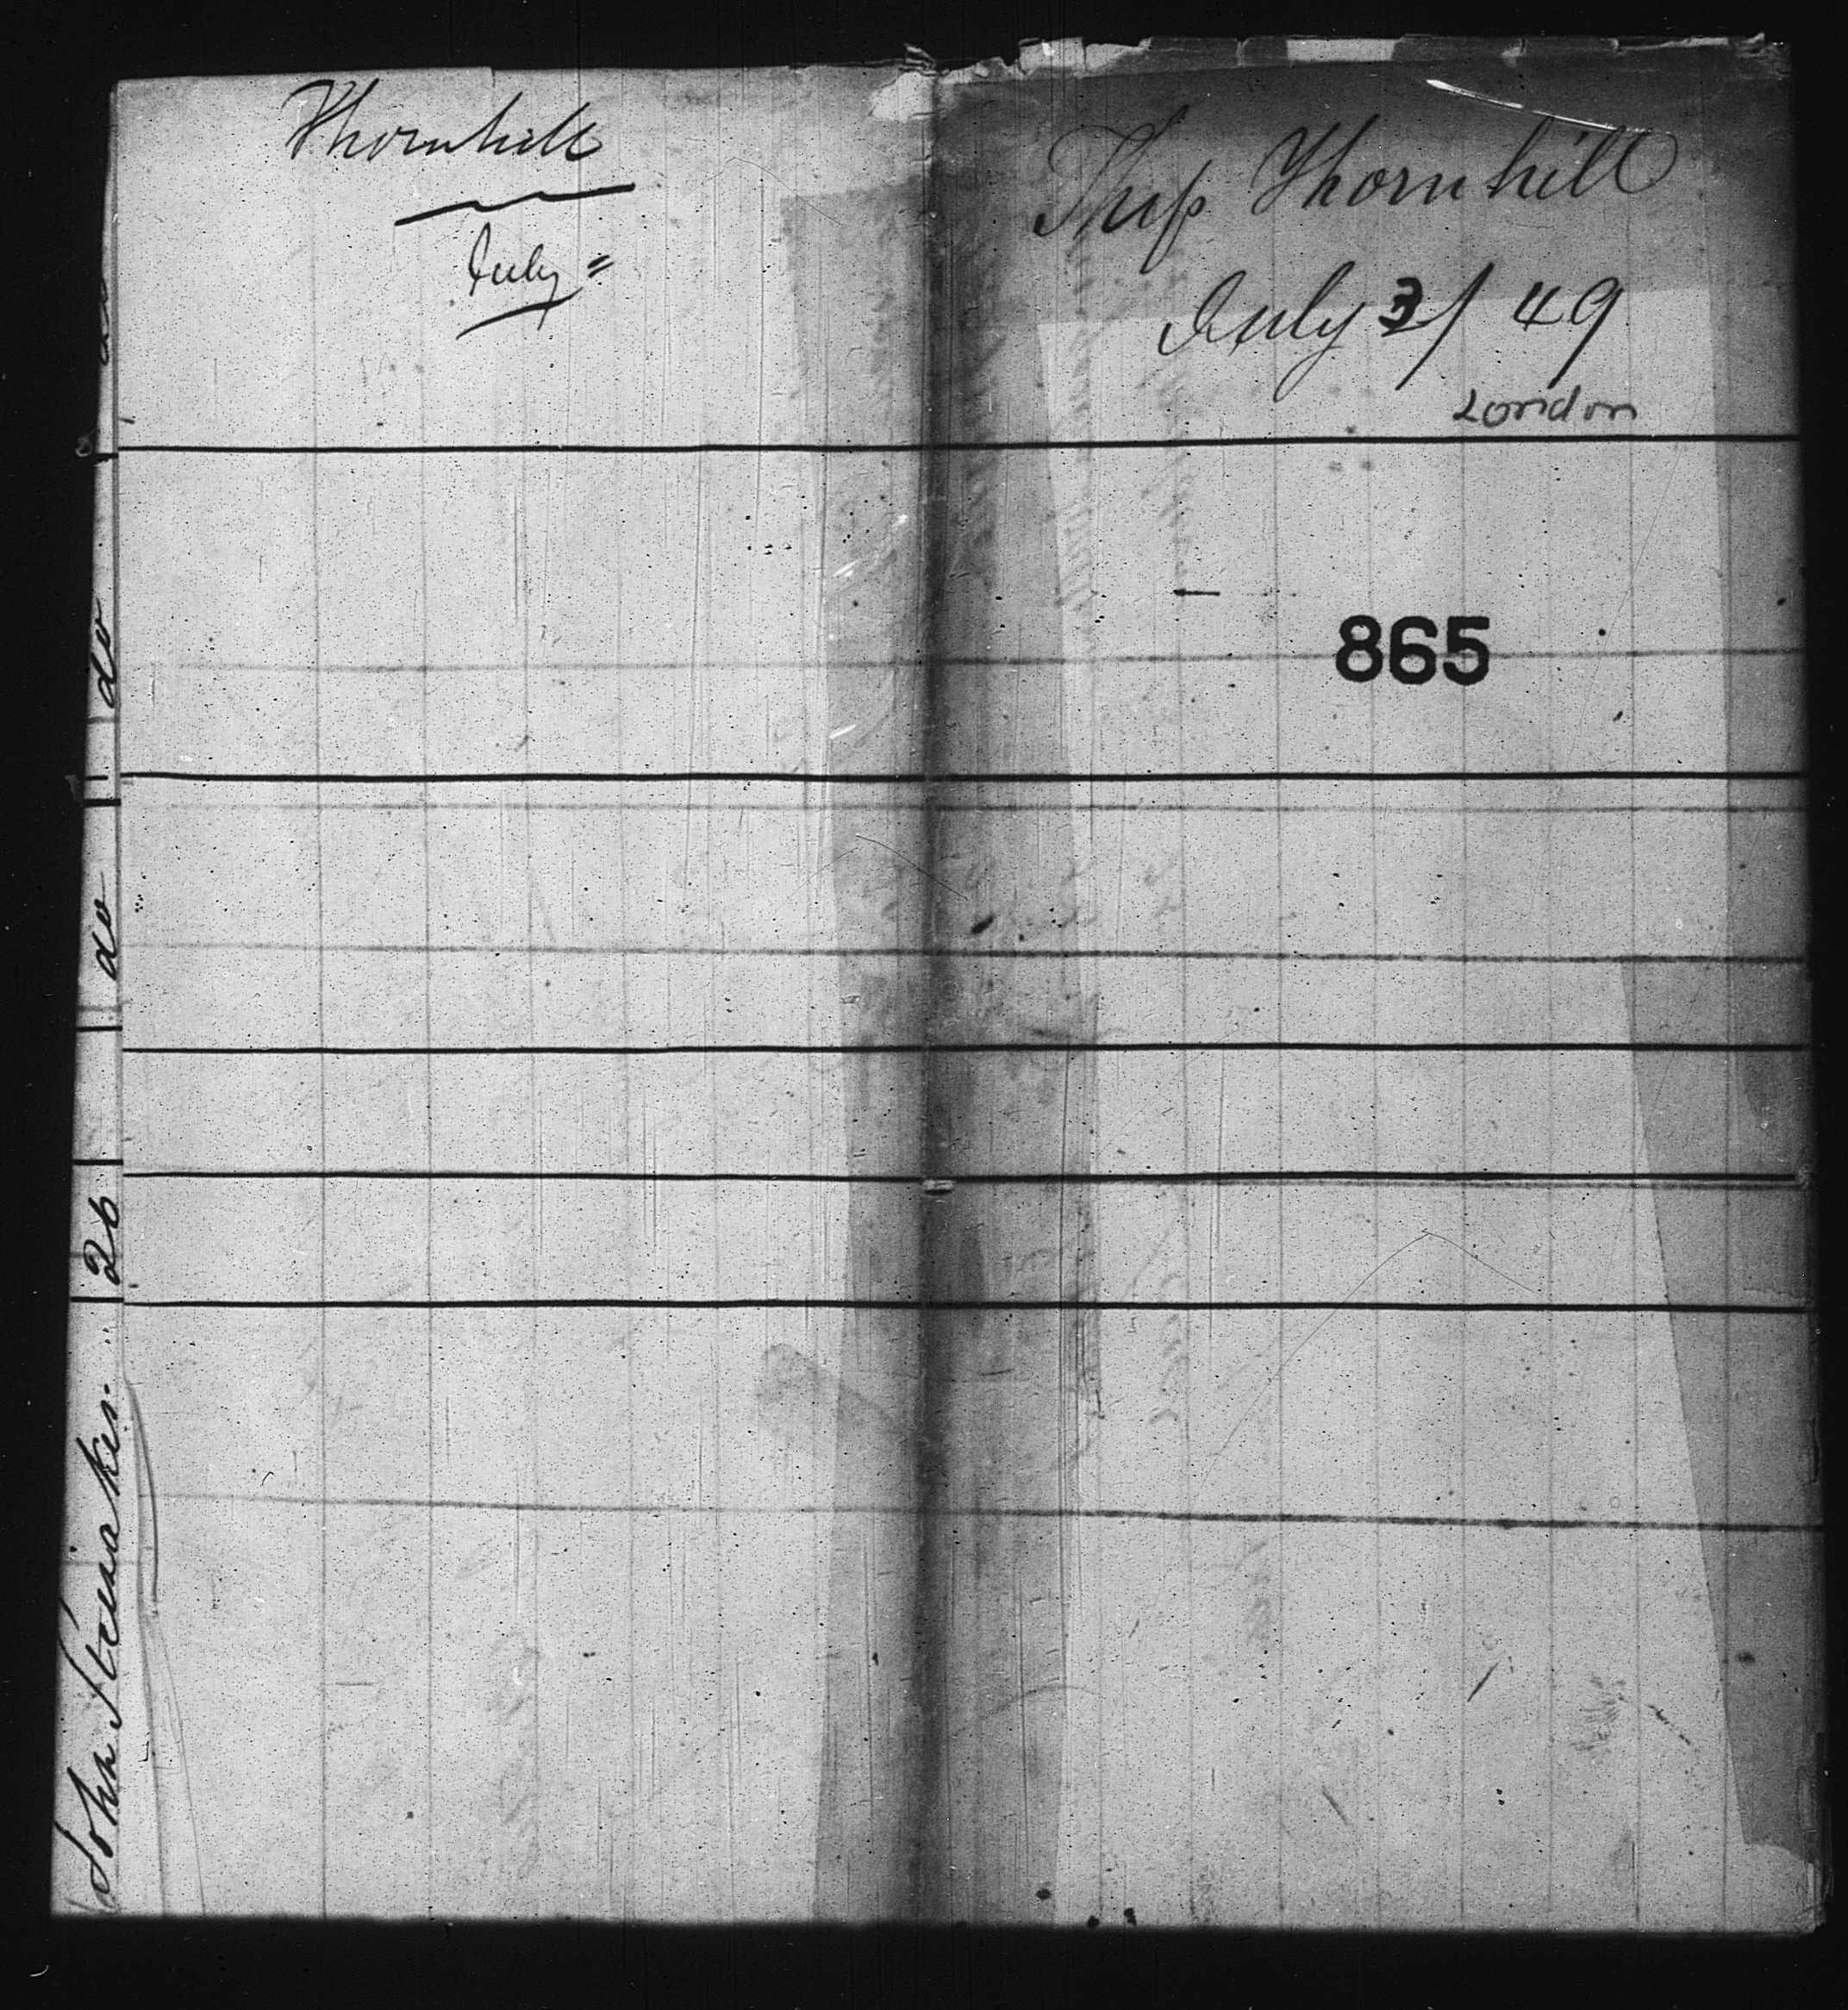 Thornhill
July =
Ship Thornhill
July 3/49
London
865
do
do
26
John Stemaker